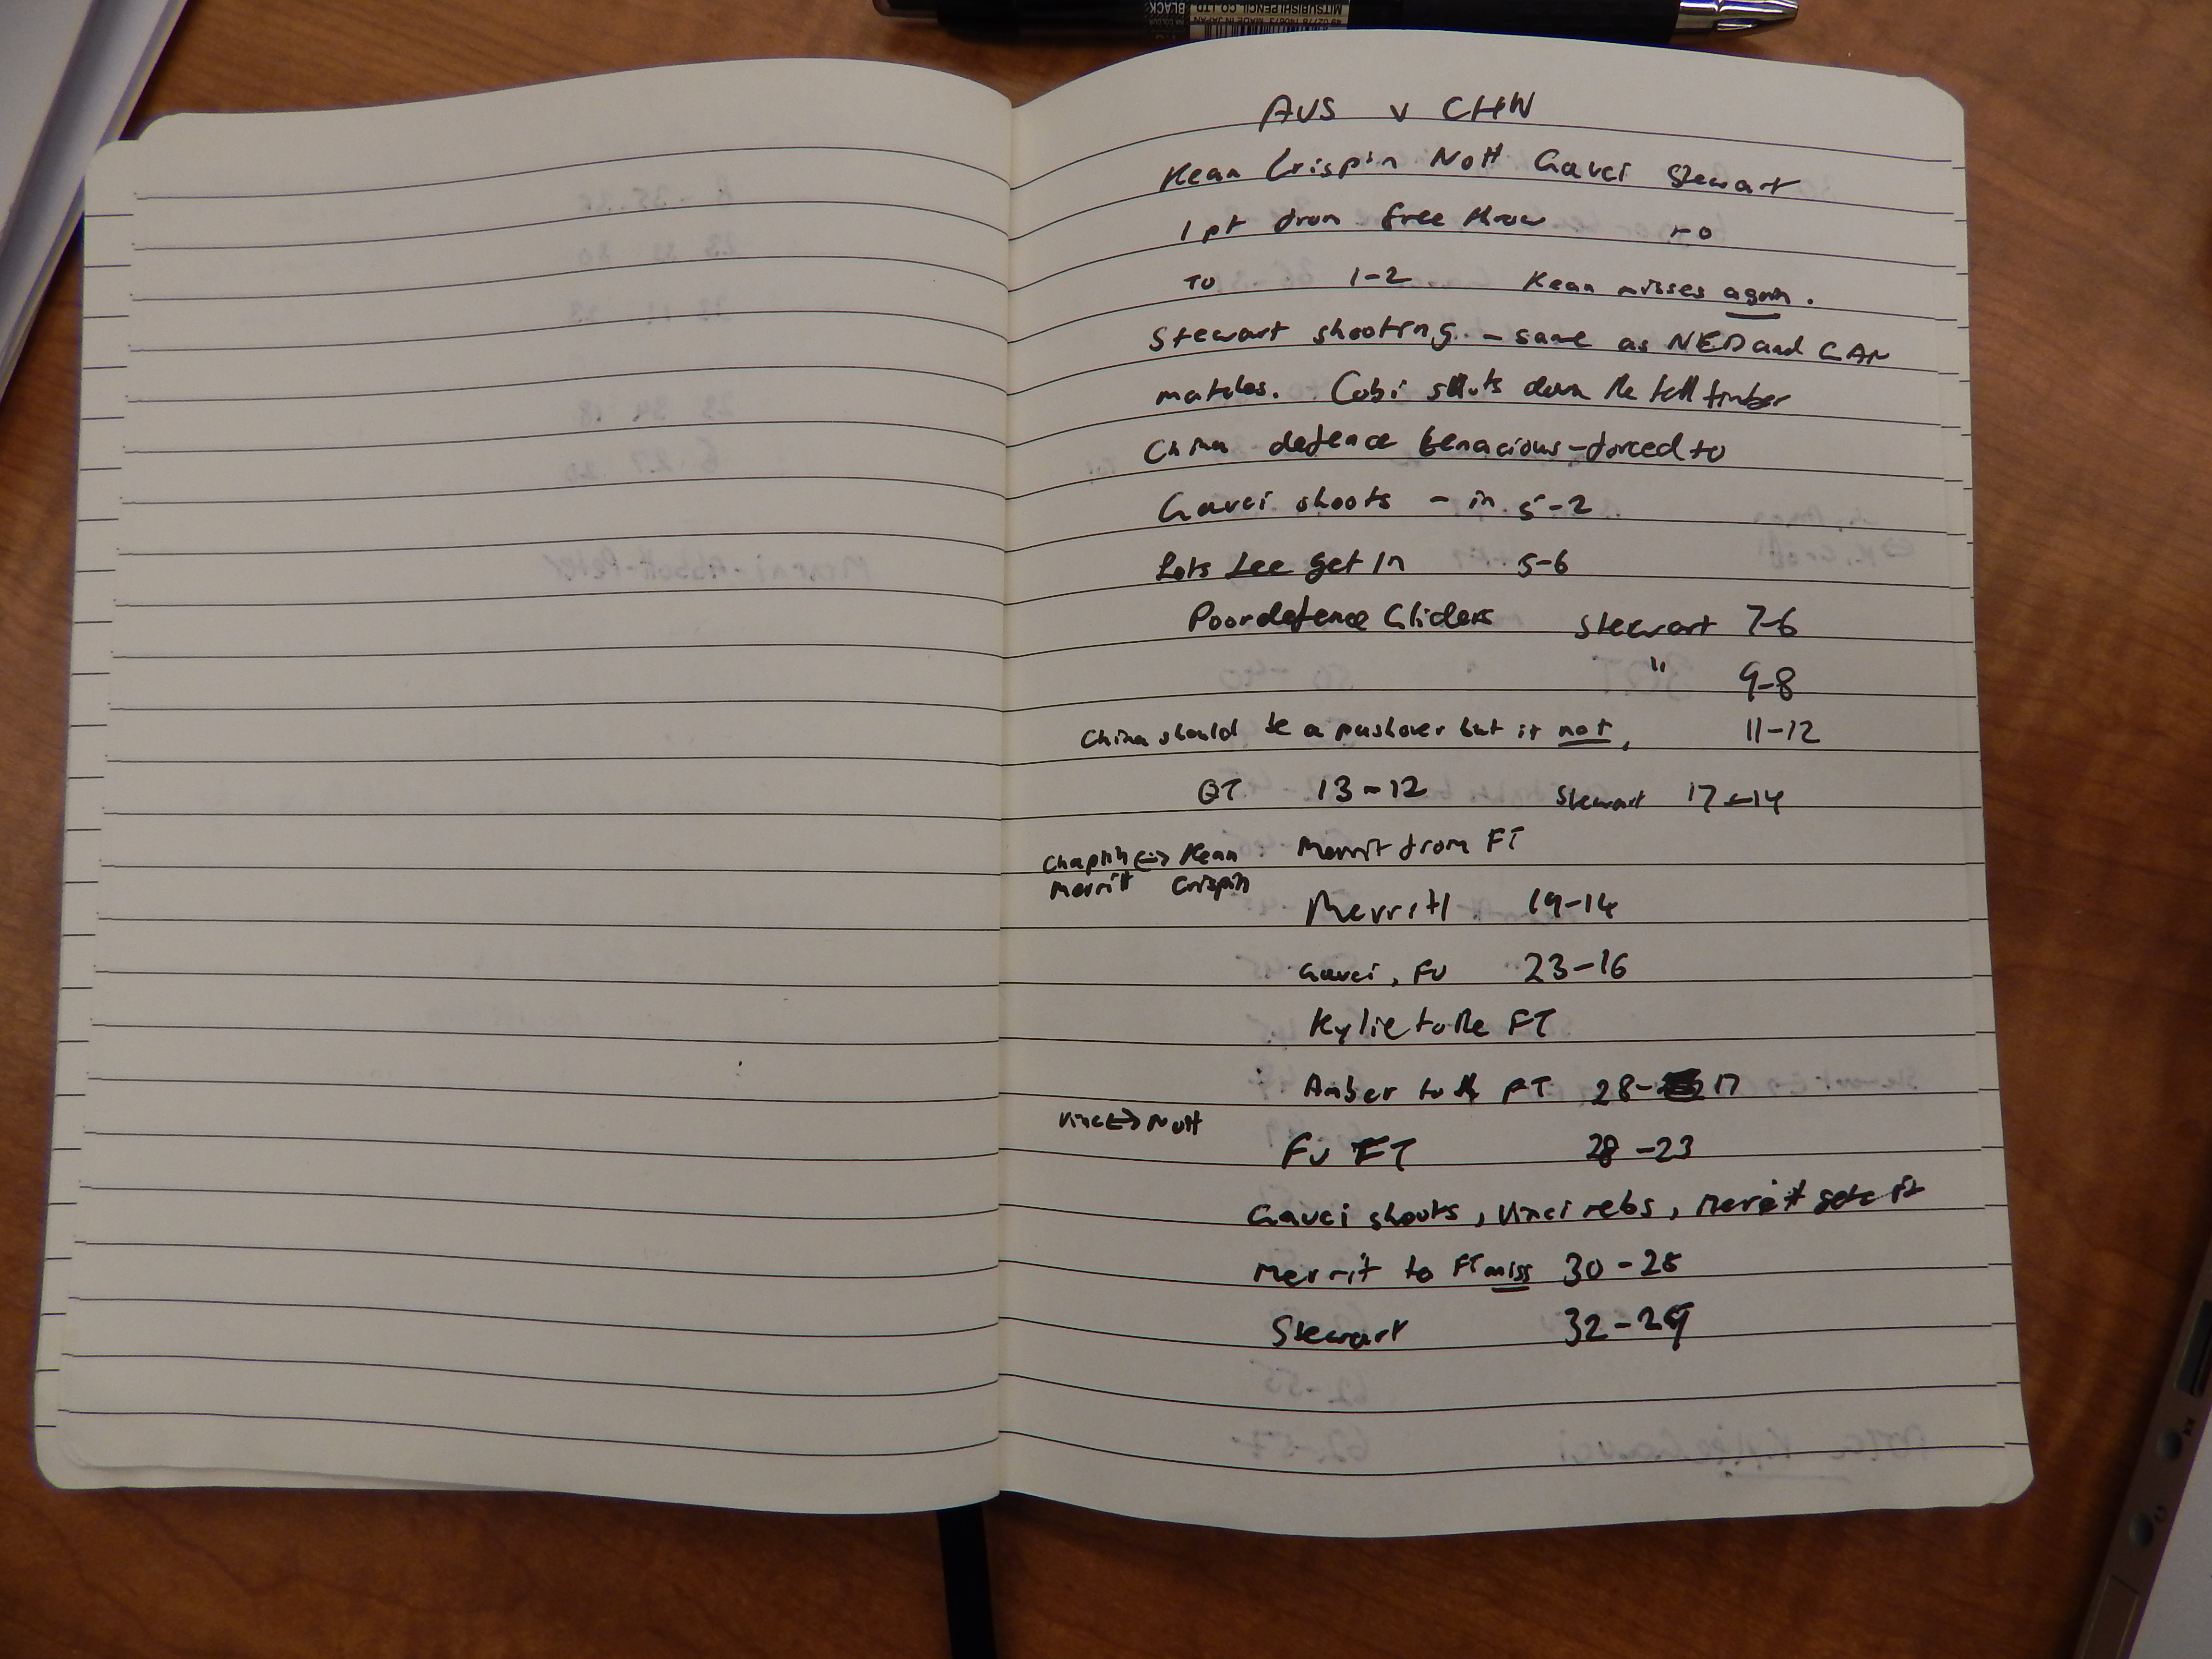 MITSUBISHI PENCIL CO LTD
BLACK
AUS v CHN
Kean Crispin Nott Gauci Stewart
1 pt from free throw 1-0
TO 1-2 Kean misses again.
Stewart shooting - same as NED and CAN
matches. Cobi shuts down the tall timber
China defence tenacious - forced to
Gauci shoots - in 5-2
Lets Lee get in 5-6
Poor defence Gliders Stewart 7-6
" 9-8
China should be a pushover but it not, 11-12
QT 13-12 Stewart 17-14
Chaplin <-> Kean Merrit from FT
Merritt Crispin
Merritt 19-14
Gauci, Fu 23-16
Kylie to the FT
Amber to the FT 28-17
Vinci <-> Nott
Fu FT 28-23
Gauci shoots, Vinci rebs, Merritt gets it
Merrit to FT miss 30-28
Stewart 32-29